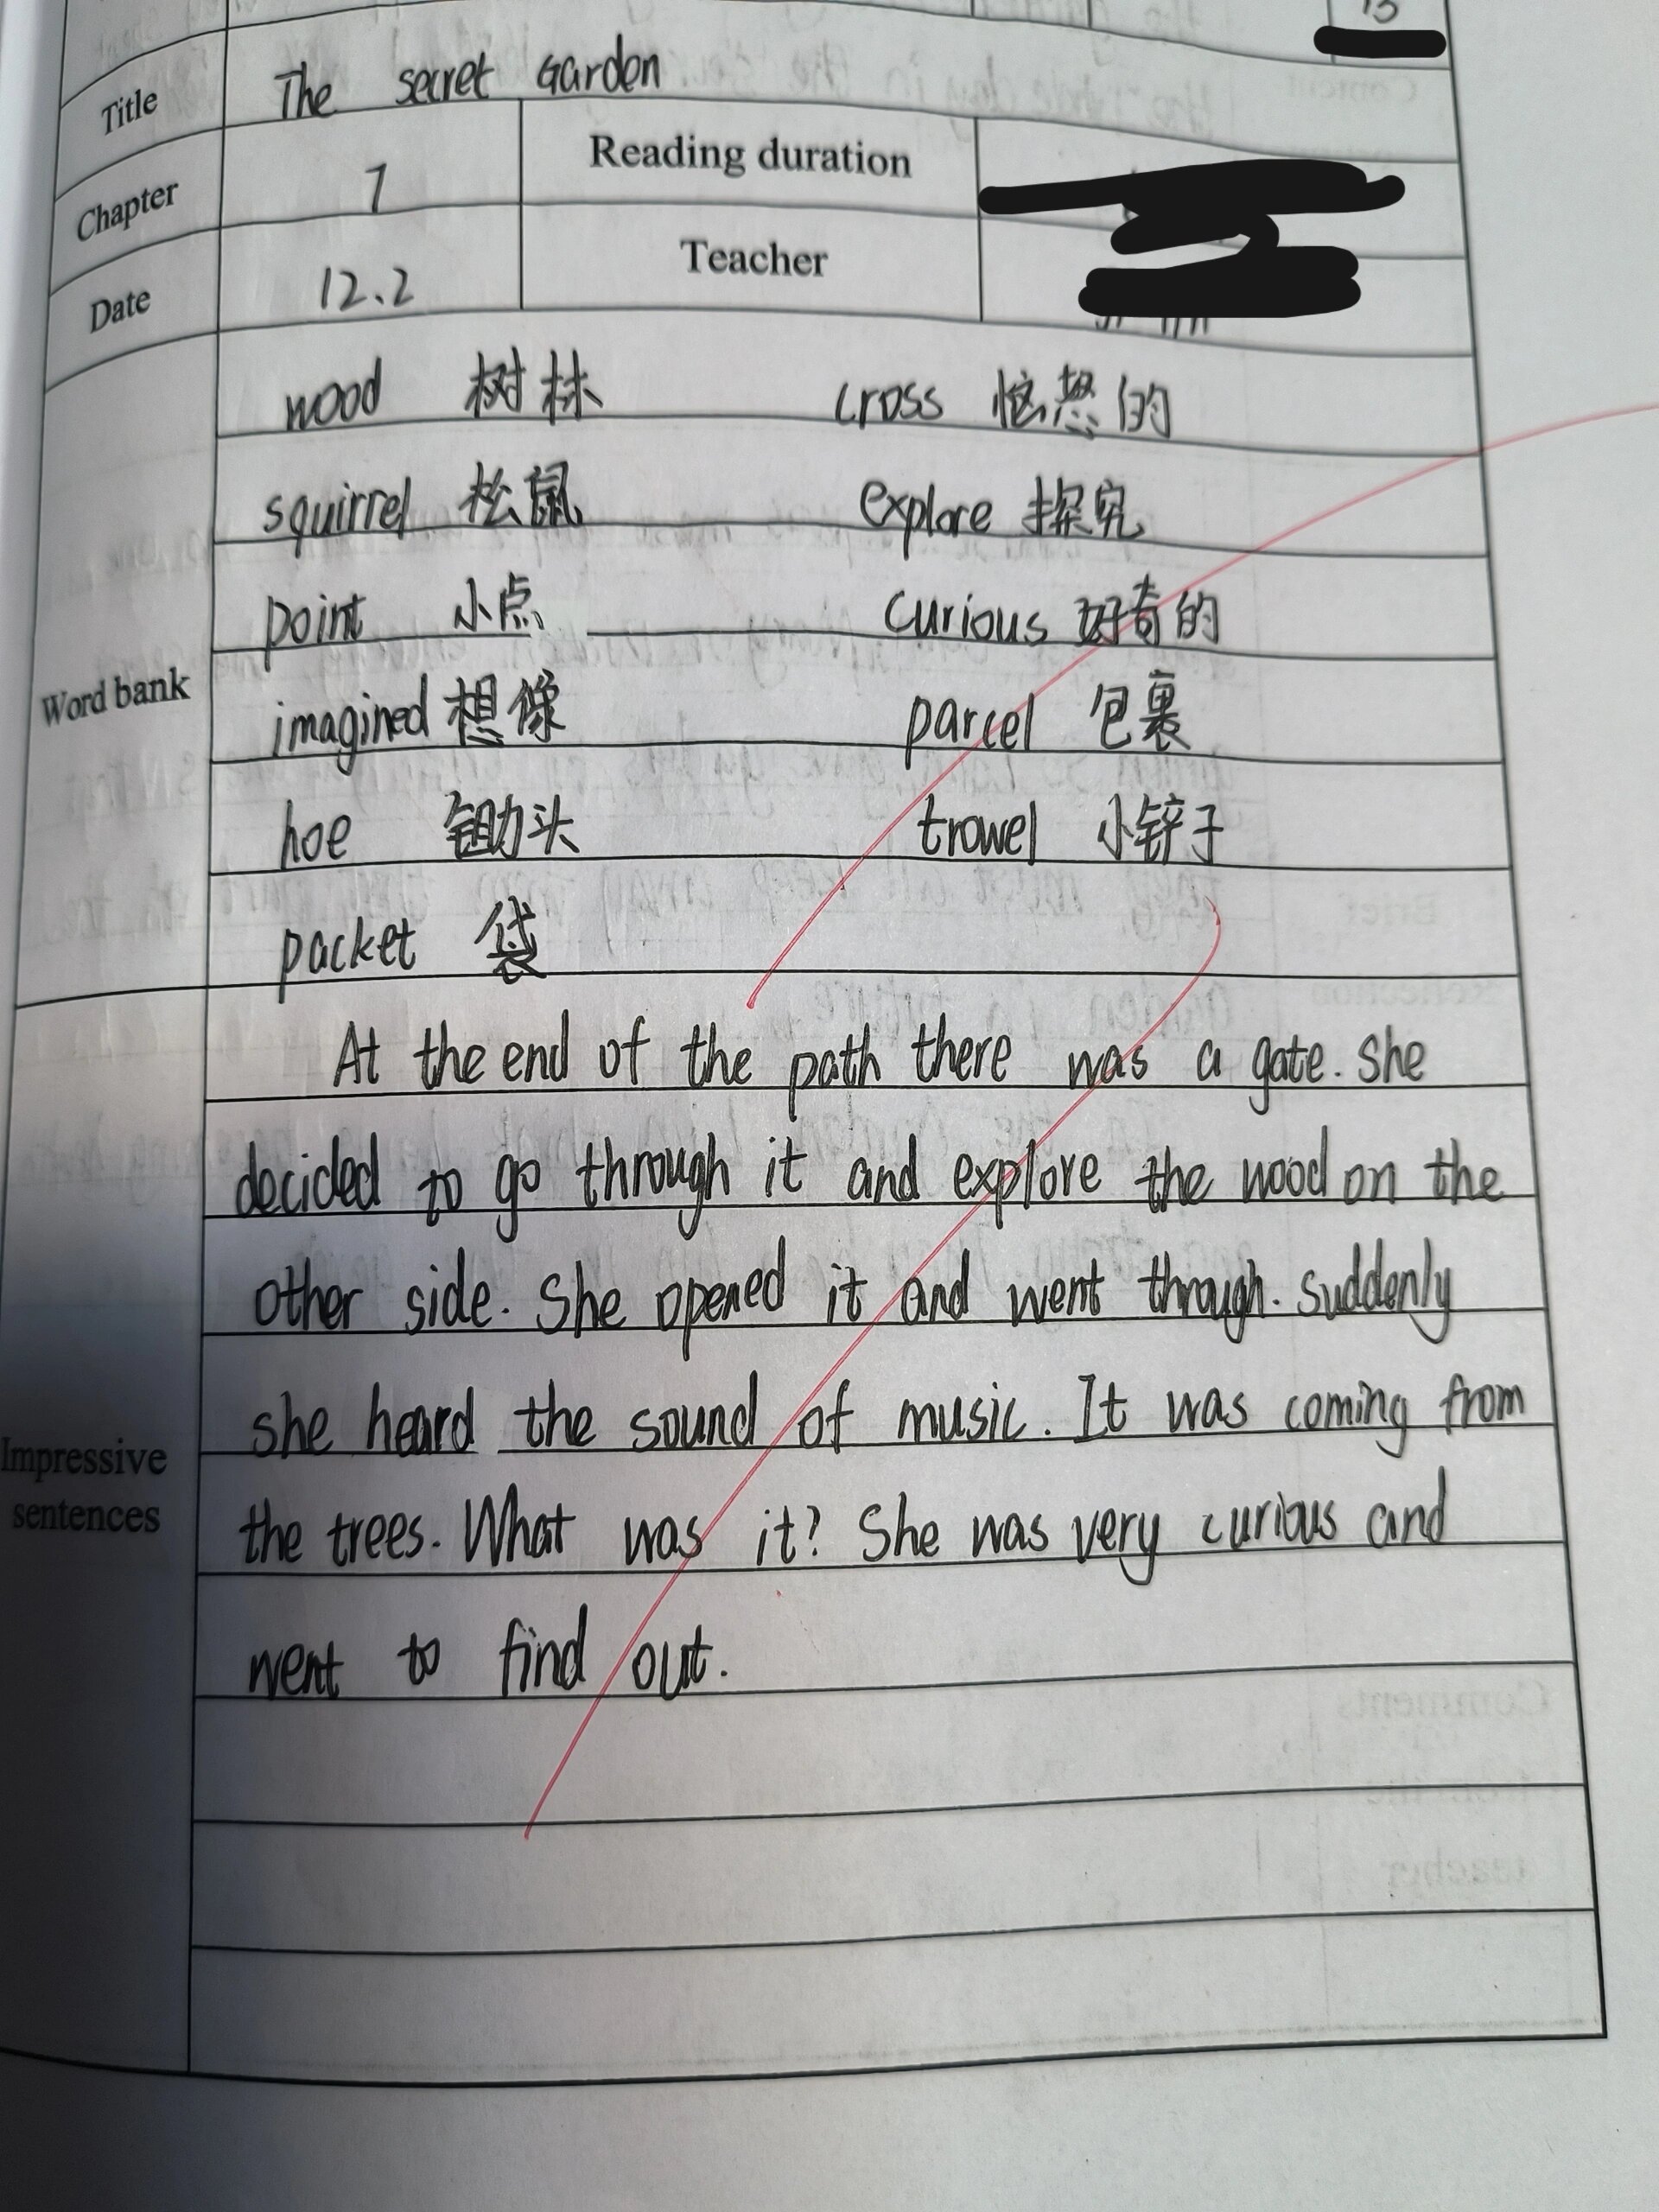 Title The secret Garden
Chapter 7 Reading duration
Date 12.2 Teacher
Word bank
wood 树林 cross 恼怒的
squirrel 松鼠 explore 探究
point 小点 curious 好奇的
imagined 想像 parcel 包裹
hoe 锄头 trowel 小铲子
packet 袋
Impressive sentences
At the end of the path there was a gate. She
decided to go through it and explore the wood on the
other side. She opened it and went through. Suddenly
she heard the sound of music. It was coming from
the trees. What was it? She was very curious and
went to find out.